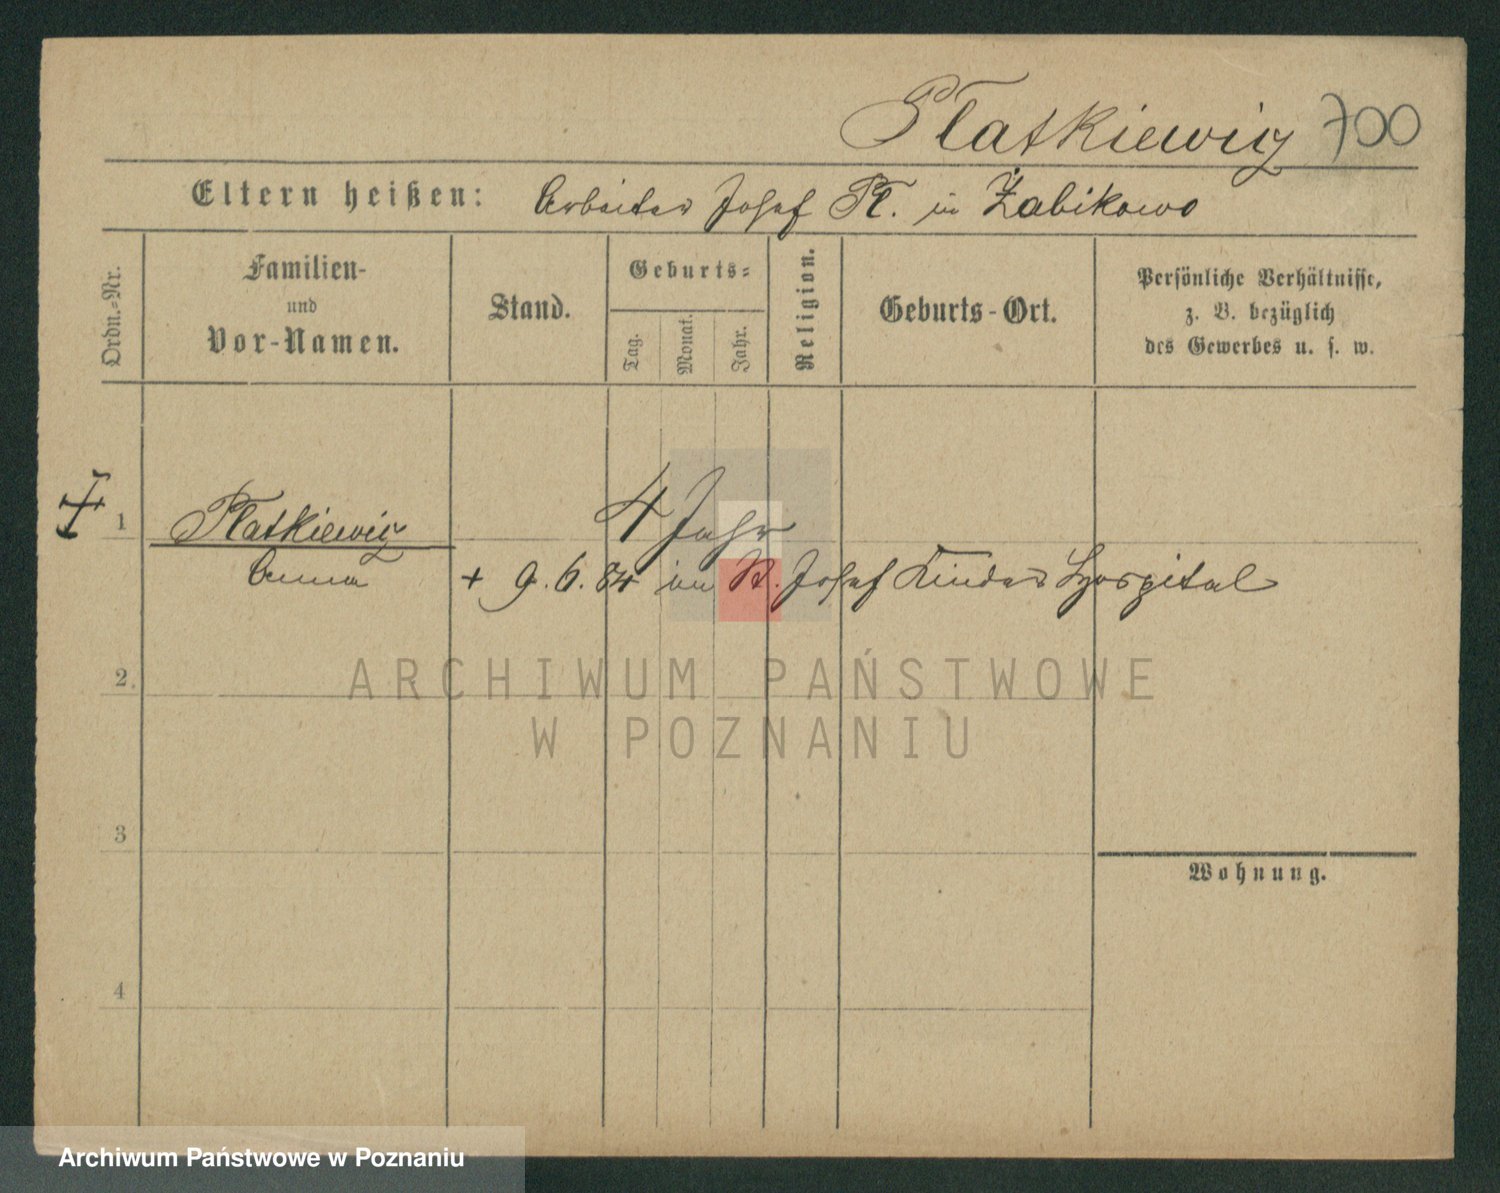 Platkiewicz 700
Eltern heißen: Arbeiter Josef Pl. in Żabikowo
Ordn.-Nr.
Familien-
und
Vor-Namen.
Stand.
Geburts-
Tag.
Monat.
Jahr.
Religion.
Geburts-Ort.
Persönliche Verhältnisse,
z. B. bezüglich
des Gewerbes u. s. w.
1 Platkiewicz 4 Jahr
Anna + 9.6.84 im St. Josef Kinder Hospital
2.
ARCHIWUM PAŃSTWOWE
W POZNANIU
3
Wohnung.
4
Archiwum Państwowe w Poznaniu